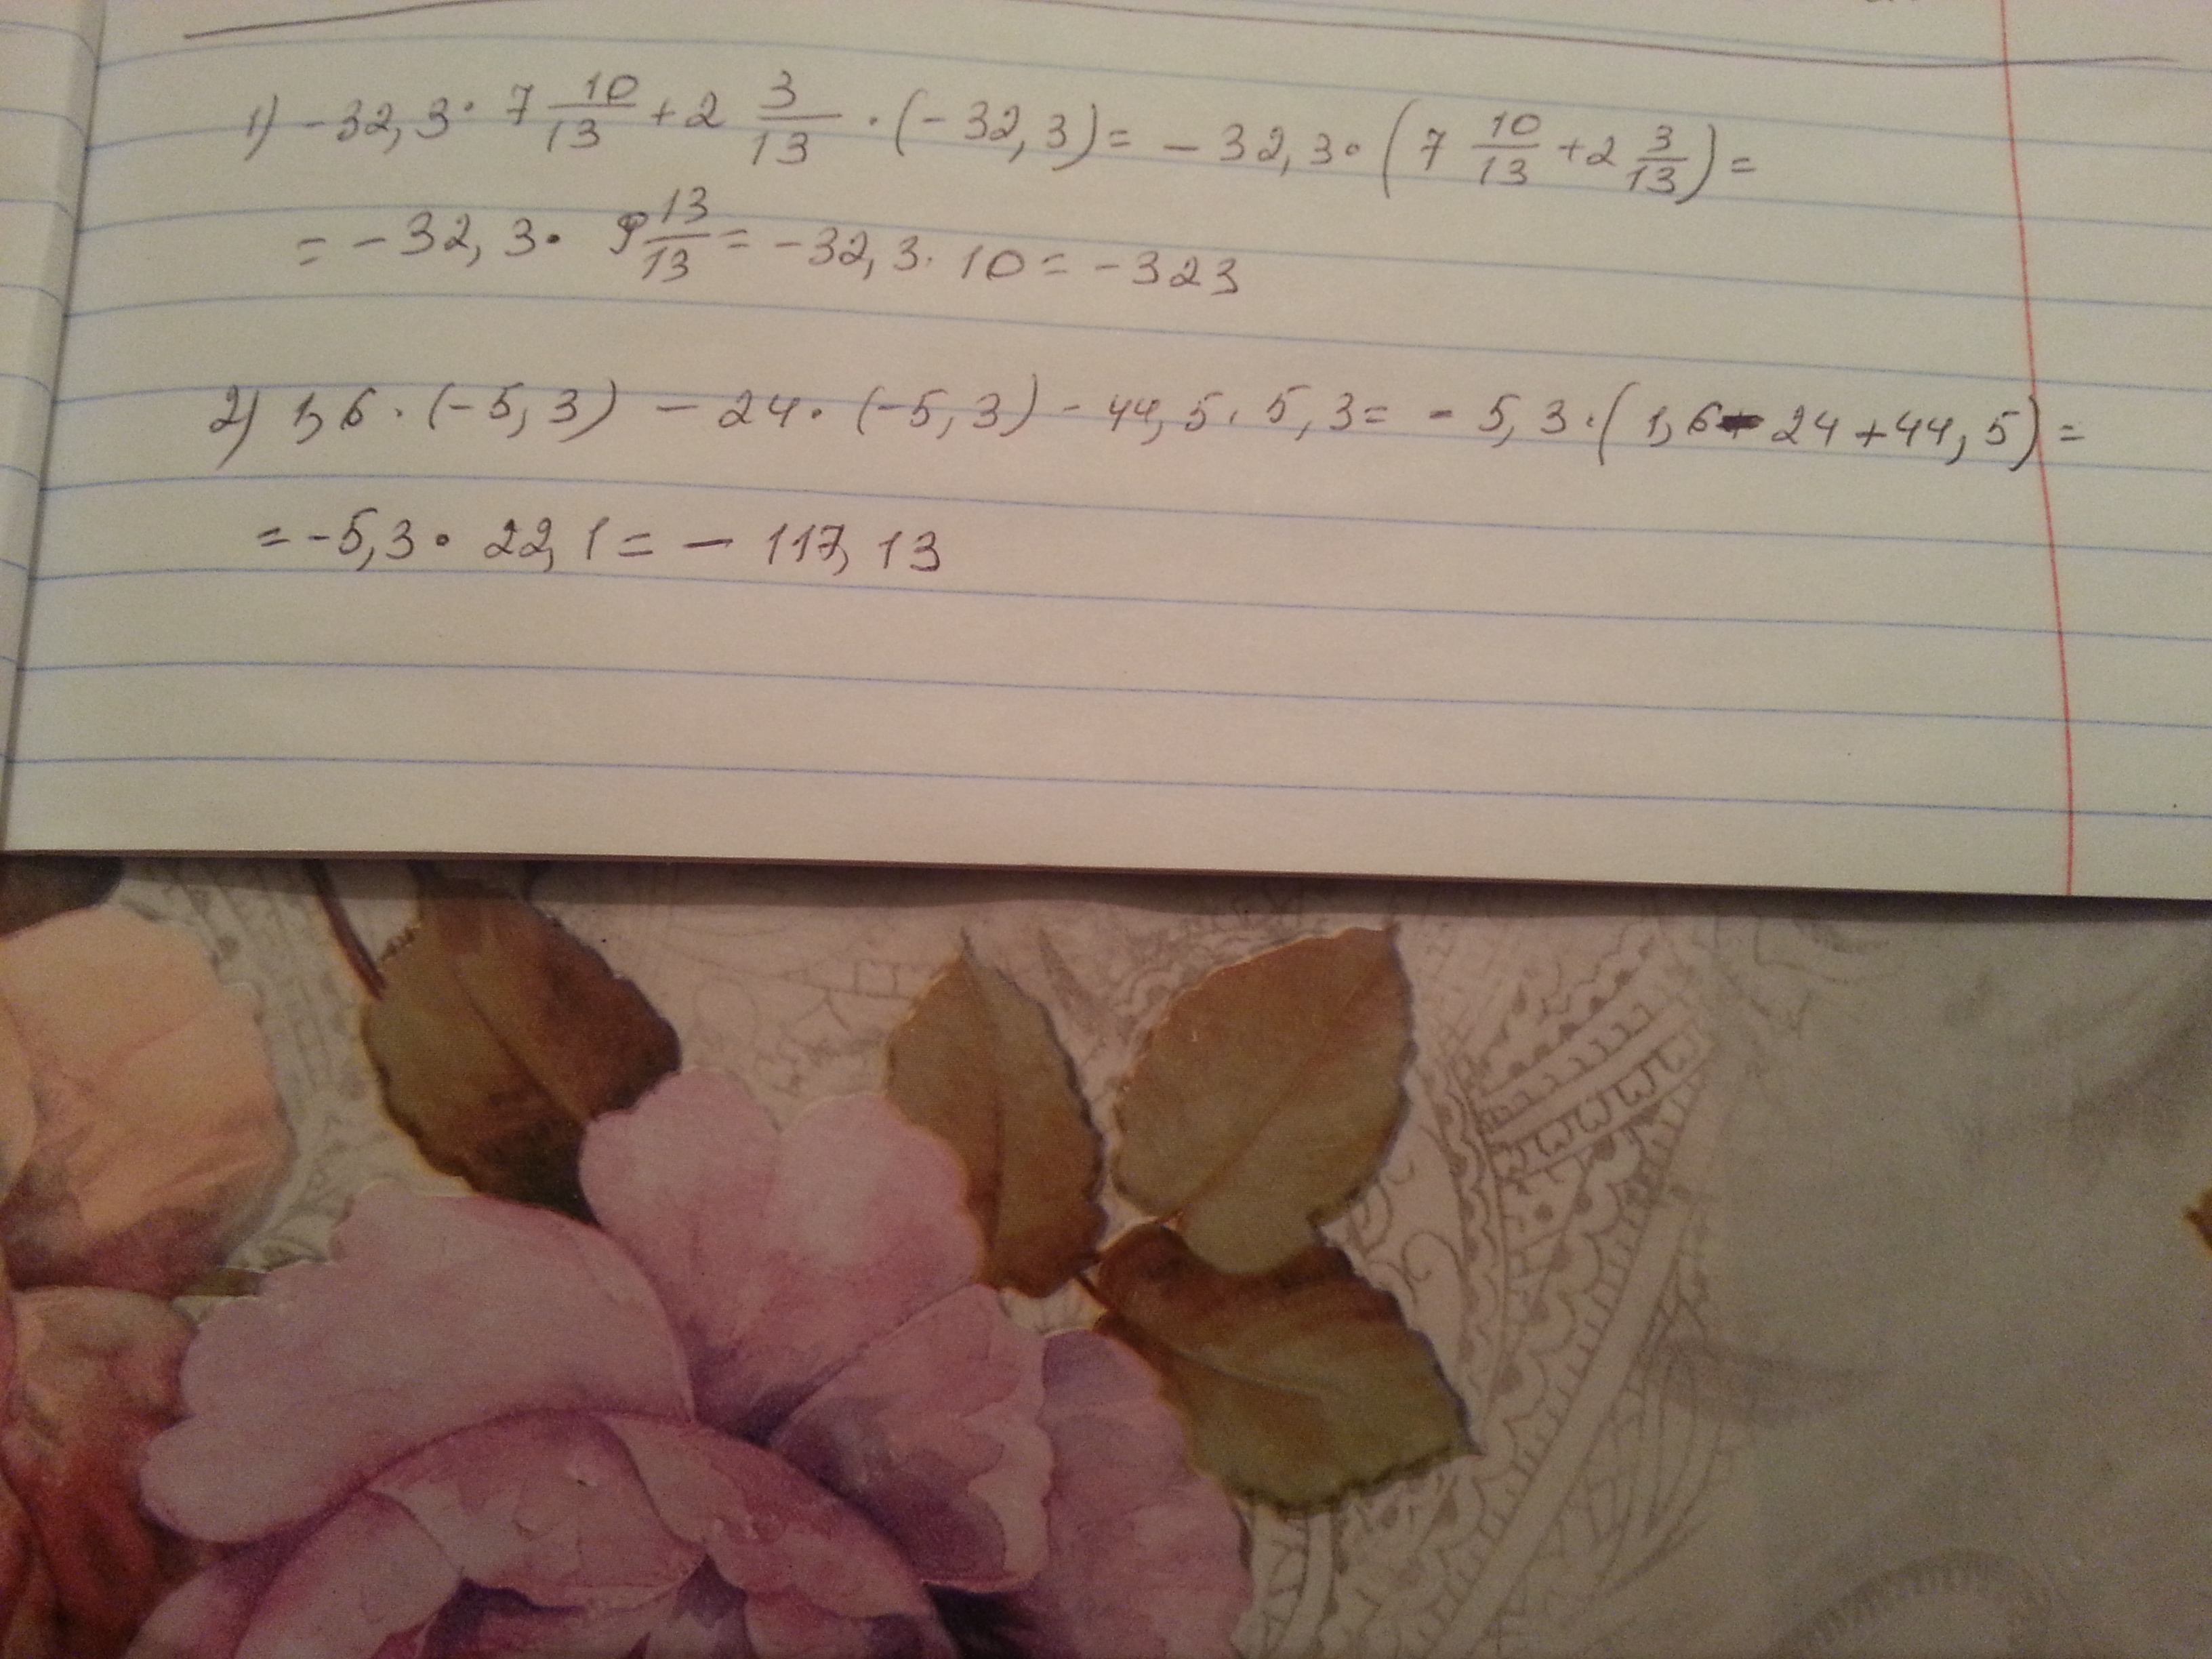 1) -32,3· 7 10/13 + 2 3/13 · (-32,3) = -32,3· (7 10/13 + 2 3/13) =
= -32,3· 9 13/13 = -32,3· 10 = -323
2) 1,6· (-5,3) - 24· (-5,3) - 44,5· 5,3 = -5,3·(1,6 - 24 + 44,5) =
= -5,3· 22,1 = - 117,13